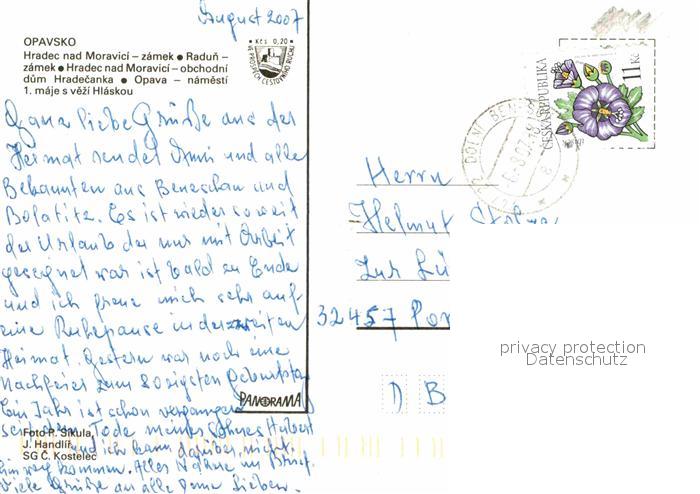 August 2007
OPAVSKO
Hradec nad Moravicí – zámek ● Raduň –
zámek ● Hradec nad Moravicí – obchodní
dům Hradečanka ● Opava – náměstí
1. máje s věží Hláskou
Kčs 0,20
VE PROSPĚCH CESTOVNÍHO RUCHU
Ganz liebe Grüße aus der
Heimat sendet Anni und alle
Bekannten aus Beneschau und
Bolatitz. Es ist wieder soweit
der Urlaub der nur mit Arbeit
gesegnet war ist bald zu Ende
und ich freue mich sehr auf
eine Ruhepause in der zweiten
Heimat. Gestern war noch eine
Nachfeier zum 80zigsten Geburtstag
Ein Jahr ist schon vergangen
seit dem Tode meines Sohnes Hubert
und ich kann darüber nicht
hinweg kommen. Alles Nähere im Brief.
Viele Grüße an alle Deine Lieben.
PANORAMA
Foto P. Sikula,
J. Handlíř,
SG Č. Kostelec
ČESKÁ REPUBLIKA
11 Kč
DOLNÍ BE
Herrn
Helmut
Zur Lü
32457 Por
D B
privacy protection
Datenschutz